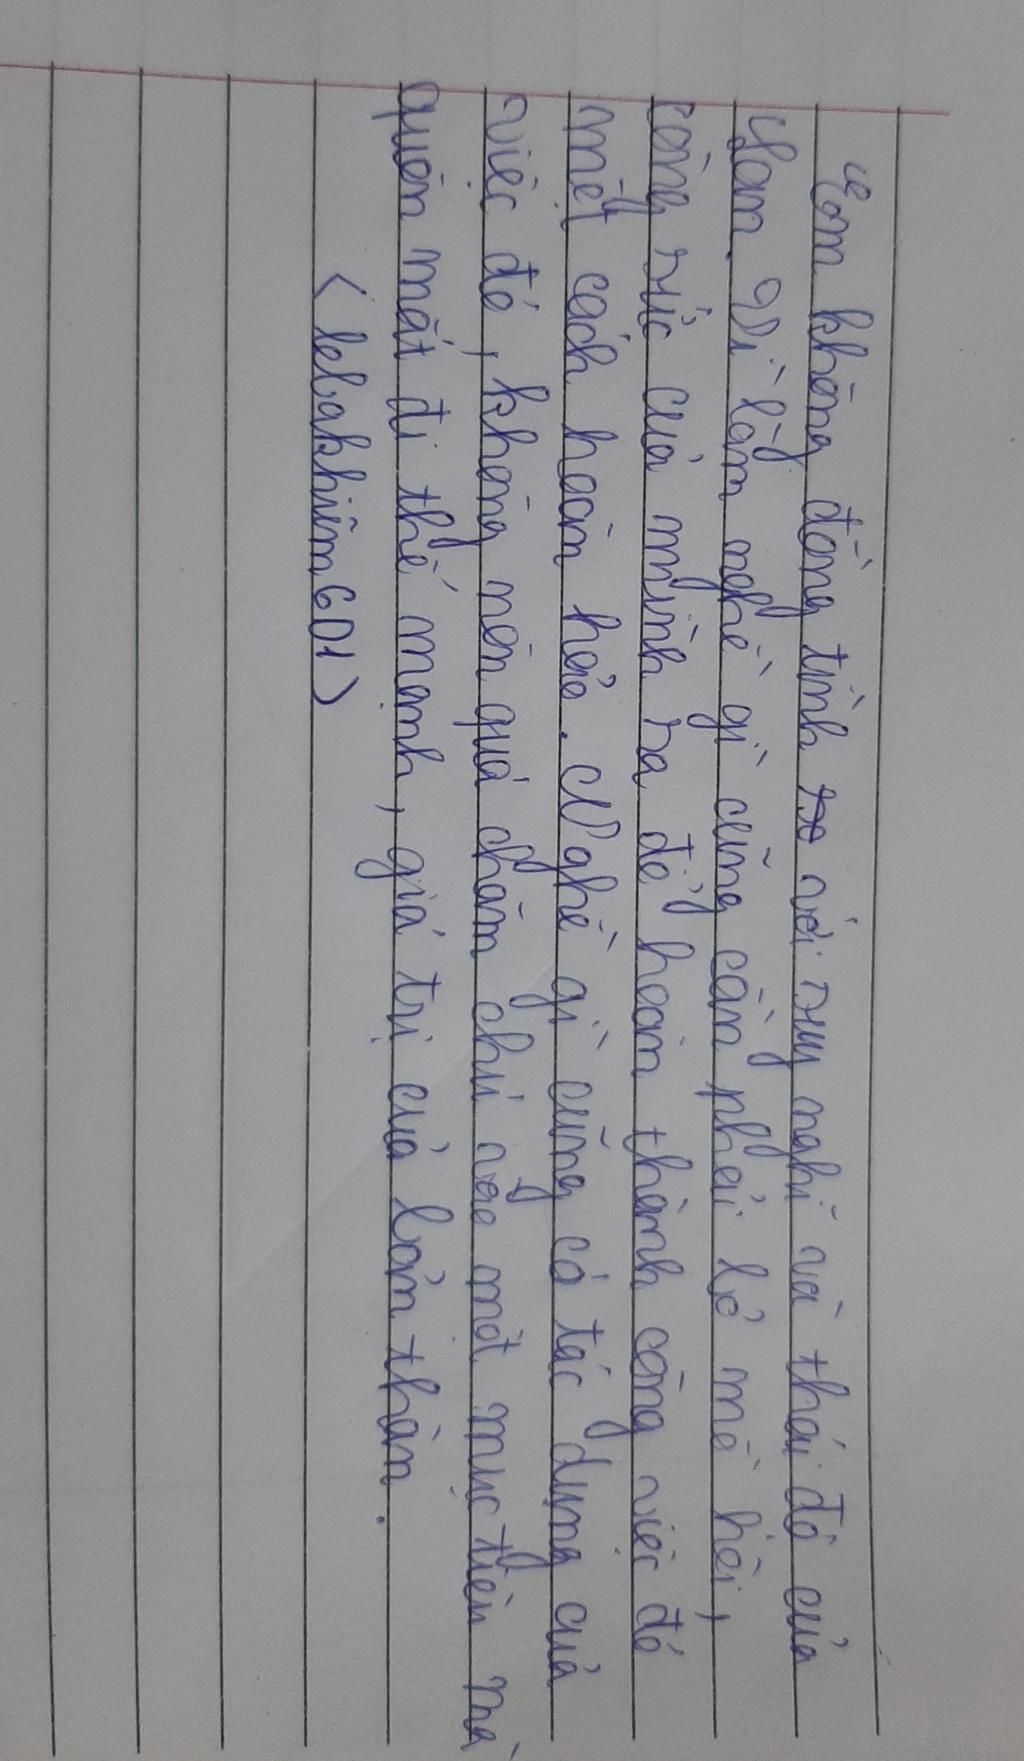 Em không đồng tình với suy nghĩ và thái độ của
Lan. Vì làm nghề gì cũng cần phải bỏ mồ hôi,
công sức của mình ra để hoàn thành công việc đó
một cách hoàn hảo. Nghề gì cũng có tác dụng của
việc đó, không nên quá chăm chú vào một mục tiêu mà
quên mất đi thế mạnh, giá trị của bản thân.
(lebakhiem601)